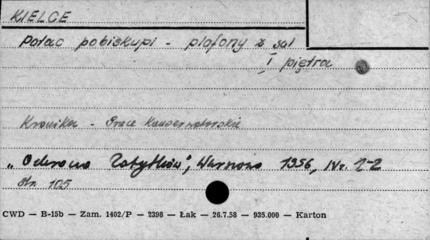 KIELCE
Pałac pobiskupi - plafony z sal
I piętra
Kronika - Prace konserwatorskie
"Ochrona Zabytków", Warszawa 1956, Nr. 1-2
str. 105
CWD — B-15b — Zam. 1402/P — 2398 — Łak — 26.7.58 — 935.000 — Karton